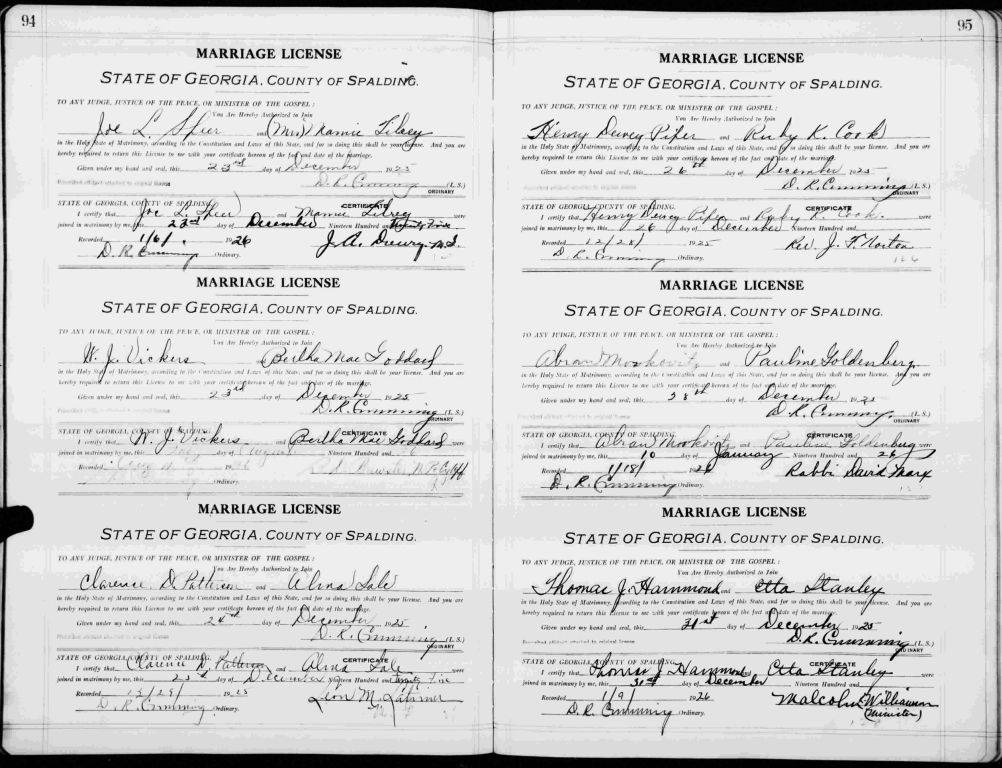 94
MARRIAGE LICENSE
STATE OF GEORGIA, COUNTY OF SPALDING.
TO ANY JUDGE, JUSTICE OF THE PEACE, OR MINISTER OF THE GOSPEL:
You Are Hereby Authorized to Join
Joe L. Speer and (Mrs) Mamie Lilrey
in the Holy State of Matrimony, according to the Constitution and Laws of this State, and for so doing this shall be your license. And you are
hereby required to return this License to me with your certificate hereon of the fact and date of the marriage.
Given under my hand and seal, this 23rd day of December 1925
Recorded affidavit attached to original license D. R. Cumming (L. S.)
ORDINARY
CERTIFICATE
STATE OF GEORGIA, COUNTY OF SPALDING.
I certify that Joe L. Speer and Mamie Lilrey were
joined in matrimony by me, this 23rd day of December Nineteen Hundred and Twenty Five
Recorded 1/6/ 1926 J. A. Drewry
D. R. Cumming Ordinary.
MARRIAGE LICENSE
STATE OF GEORGIA, COUNTY OF SPALDING.
TO ANY JUDGE, JUSTICE OF THE PEACE, OR MINISTER OF THE GOSPEL:
You Are Hereby Authorized to Join
W. J. Vickers Bertha Mae Goddard
in the Holy State of Matrimony, according to the Constitution and Laws of this State, and for so doing this shall be your license. And you are
hereby required to return this License to me with your certificate hereon of the fact and date of the marriage.
Given under my hand and seal, this 23rd day of December 1925
D. R. Cumming (L. S.)
ORDINARY
CERTIFICATE
STATE OF GEORGIA, COUNTY OF SPALDING.
I certify that W. J. Vickers Bertha Mae Goddard were
joined in matrimony by me, this day of Nineteen Hundred and
Recorded
Ordinary.
MARRIAGE LICENSE
STATE OF GEORGIA, COUNTY OF SPALDING.
TO ANY JUDGE, JUSTICE OF THE PEACE, OR MINISTER OF THE GOSPEL:
You Are Hereby Authorized to Join
Clarence D. Patterson and Alma Sale
in the Holy State of Matrimony, according to the Constitution and Laws of this State, and for so doing this shall be your license. And you are
hereby required to return this License to me with your certificate hereon of the fact and date of the marriage.
Given under my hand and seal, this 24th day of December 1925
D. R. Cumming (L. S.)
ORDINARY
CERTIFICATE
STATE OF GEORGIA, COUNTY OF SPALDING.
I certify that Clarence D. Patterson and Alma Sale were
joined in matrimony by me, this 25 day of December Nineteen Hundred and Twenty Five
Recorded 12/28/ 1925 Leon M. Latimer
D. R. Cumming Ordinary.
95
MARRIAGE LICENSE
STATE OF GEORGIA, COUNTY OF SPALDING.
TO ANY JUDGE, JUSTICE OF THE PEACE, OR MINISTER OF THE GOSPEL:
You Are Hereby Authorized to Join
Henry Dewey Piper and Ruby K. Cook
in the Holy State of Matrimony, according to the Constitution and Laws of this State, and for so doing this shall be your license. And you are
hereby required to return this License to me with your certificate hereon of the fact and date of the marriage.
Given under my hand and seal, this 26th day of December 1925
D. R. Cumming (L. S.)
ORDINARY
CERTIFICATE
STATE OF GEORGIA, COUNTY OF SPALDING.
I certify that Henry Dewey Piper and Ruby K. Cook. were
joined in matrimony by me, this 26 day of December Nineteen Hundred and
Recorded 12/28/ 1925 Rev. J. F. Norton
D. R. Cumming Ordinary.
MARRIAGE LICENSE
STATE OF GEORGIA, COUNTY OF SPALDING.
TO ANY JUDGE, JUSTICE OF THE PEACE, OR MINISTER OF THE GOSPEL:
You Are Hereby Authorized to Join
Abram Moskovitz and Pauline Goldenberg
in the Holy State of Matrimony, according to the Constitution and Laws of this State, and for so doing this shall be your license. And you are
hereby required to return this License to me with your certificate hereon of the fact and date of the marriage.
Given under my hand and seal, this 28th day of December 1925
D. R. Cumming (L. S.)
ORDINARY
CERTIFICATE
STATE OF GEORGIA, COUNTY OF SPALDING.
I certify that Abram Moskovitz and Pauline Goldenberg were
joined in matrimony by me, this 10 day of January Nineteen Hundred and 26
Recorded 1/18/ 1926 Rabbi David Marx
D. R. Cumming Ordinary.
MARRIAGE LICENSE
STATE OF GEORGIA, COUNTY OF SPALDING.
TO ANY JUDGE, JUSTICE OF THE PEACE, OR MINISTER OF THE GOSPEL:
You Are Hereby Authorized to Join
Thomas J. Hammond and Etta Stanley
in the Holy State of Matrimony, according to the Constitution and Laws of this State, and for so doing this shall be your license. And you are
hereby required to return this License to me with your certificate hereon of the fact and date of the marriage.
Given under my hand and seal, this 31st day of December 1925
Recorded affidavit attached to original license D. R. Cumming (L. S.)
ORDINARY
CERTIFICATE
STATE OF GEORGIA, COUNTY OF SPALDING.
I certify that Thomas J. Hammond Etta Stanley were
joined in matrimony by me, this 31st day of December Nineteen Hundred and
Recorded 1/9/ 1926 Malcolm Williamson
D. R. Cumming Ordinary. (Minister)